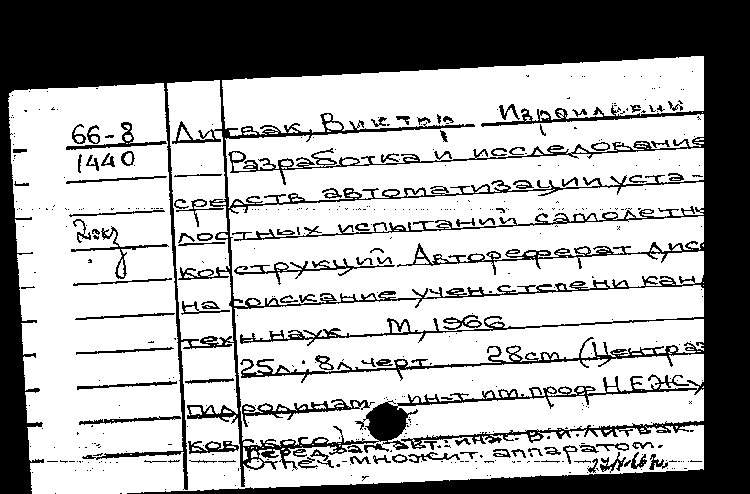 66-8 Литвак, Виктор Израилевич
1440 Разработка и исследование
средств автоматизации уста-
2 экз лостных испытаний самолетн
конструкций Автореферат дисс
на соискание учен. степени кан
техн. наук. М., 1966.
25 л.; 8 л. черт. 28 см. (Централ
гидродинам. ин-т им. проф Н.Е. Жу
ковского)
Перед загл. авт.: инж. В.И. Литвак
Отпеч. множит. аппаратом.